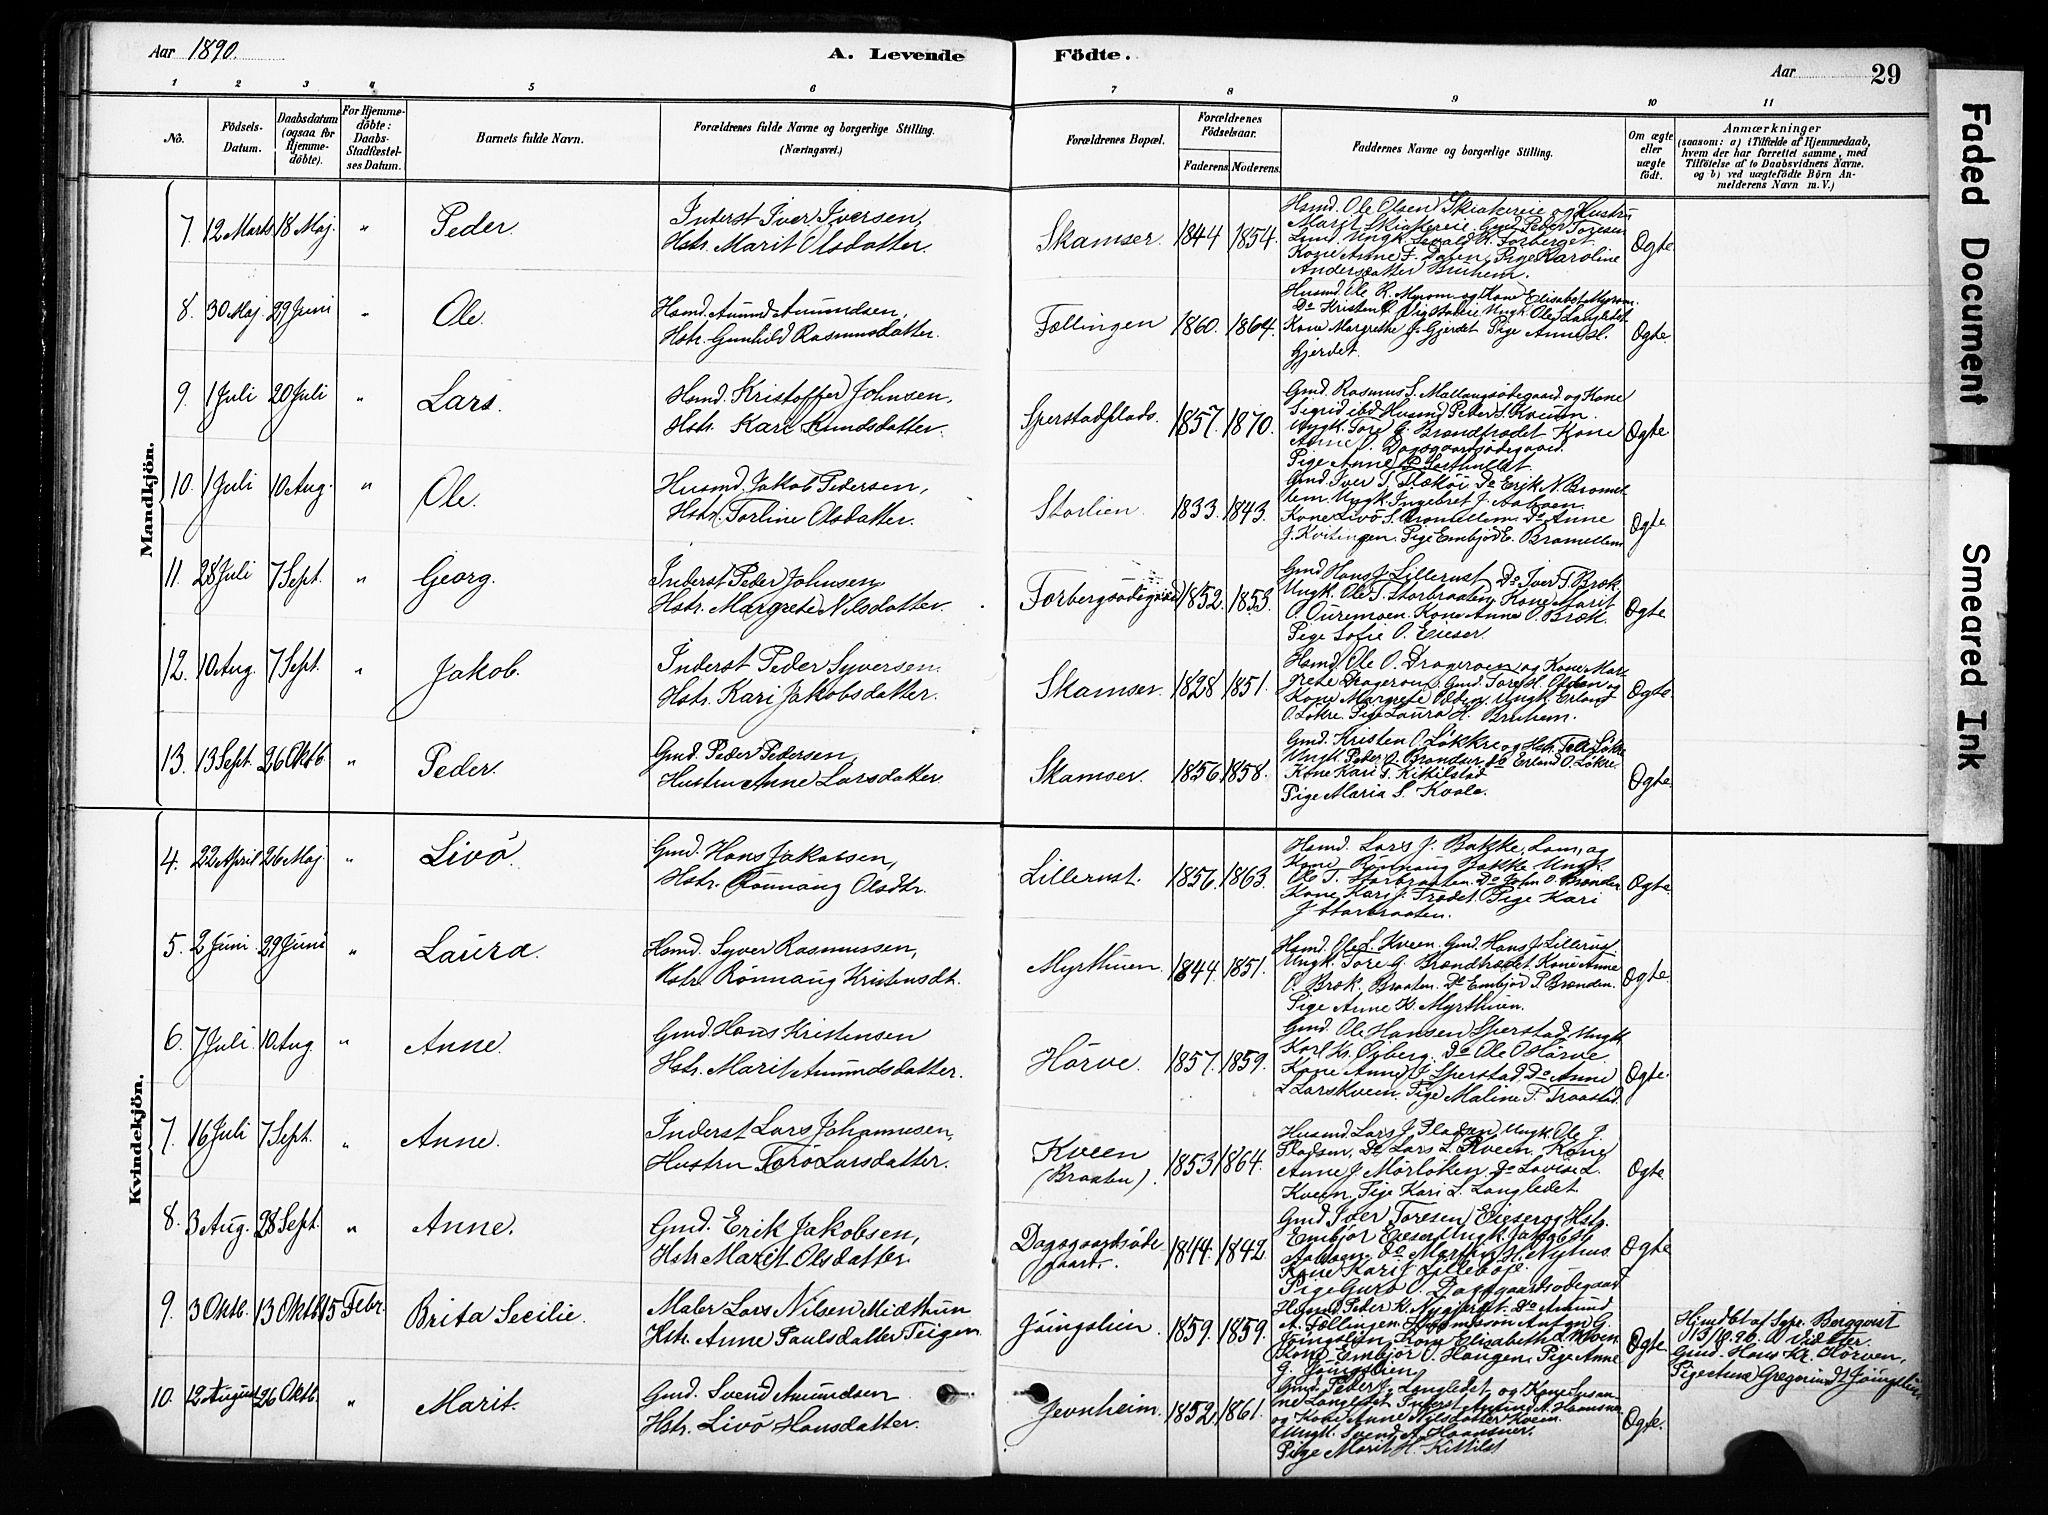 Aar 1890. A. Levende Födte. Aar 29
1 2 3 4 5 6 7 8 9 10 11
Nô. Födsels-Datum. Daabsdatum (ogsaa for Hjemme-döbte). For Hjemme-döbte: Daabs-Stadfæstel-ses Datum. Barnets fulde Navn. Forældrenes fulde Navne og borgerlige Stilling. (Næringsvei.) Forældrenes Bopæl. Forældrenes Födselsaar. Faderens. Moderens. Faddernes Navne og borgerlige Stilling. Om ægte eller uægte födt. Anmærkninger (saasom: a) i Tilfælde af Hjemmedaab, hvem der har forrettet samme, med Tilföielse af to Daabsvidners Navne. og b) ved uægtefödte Börn An-melderens Navn m. V.)
Mandkjön.
7. 12 Marts 18 Maj. " Peder. Inderst Iver Iversen, Hstr. Marit Olsdatter. Skamser. 1844 1854. Ogte
Hsmd. Ole Olsen Skiakereie og Hustru
Marit Skiakereie. Gmd. Peder Toresen
Lund. Ungk. Sevald K. Forberget.
Kone Anne F. Dalen, Pige Karoline
Andersdatter Bruhem.
8. 30 Maj. 29 Juni " Ole. Hsmd. Amund Amundsen, Hstr. Gunhild Rasmusdatter. Fællingen 1860. 1864. Ogte.
Husmd. Ole R. Myrom og Kone Elisabet Myrom.
Do Kristen O. Ungk. Ole Langledet
Kone Margrethe J. Gjerdet. Pige Anne H.
Gjerdet.
9. 1 Juli 20 Juli " Lars. Hsmd. Kristoffer Johnsen, Hstr. Kari Knudsdatter. Sperstadplads. 1857. 1870. Ogte
Gmd. Rasmus S. Mallangsødegaard og Kone
Sigrid ibd. Husmd Peder S. Kveen.
Ungk. Tore G. Brændtrædet. Kone
Anne O. Dagsgaardsødegaard.
Pige Anne
10. 1 Juli 10 Aug. " Ole. Husmd. Jakob Pedersen, Hstr. Torline Olsdatter. Storlien 1833. 1843. Ogte
Gmd. Iver T. Flækøi. Do Erik N. Bromel-
lem. Ungk. Ingebret J. Aaboen.
Kone Livö S. Bromellem. Do Anne
J. Kvitingen. Pige Embjör E. Bromellem
11. 28 Juli 7 Sept. " Georg. Inderst Peder Johnsen Hstr. Margrete Nilsdatter. Forbergsødegaard 1852. 1853. Ogte
Gmd Hans J. Lillerust. Do Iver T. Bræk.
Ungk. Ole T. Storbraaten. Kone Marit
O. Øyremoen. Kone Anne O. Bræk.
Pige Sofie O. Eieser.
12. 10 Aug. 7 Sept. " Jakob. Inderst Peder Syversen Hstr. Kari Jakobsdatter. Skamser. 1828 1851. Ogte
Hsmd. Ole O. Drageroen og Kone Mar-
grete Drageroen. Gmd. Tore H. Odden og
Kone Margrete Odden. Ungk. Erland
O. Løkre. Pige Laura H. Bruhem.
13. 13 Sept. 26 Oktb. " Peder. Gmd. Peder Pedersen, Hustru Anne Larsdatter Skamser. 1856. 1858. Ogte.
Gmd. Kristen O. Løkkre og Hstr. Løkre
Ungk. Peder O. Brændur. Do Erland O. Løkre.
Kone Kari T. Kittilstad
Pige Maria S. Kvale.
Kvindekjön.
4. 22 April 26 Maj. " Livö. Gmd. Hans Jakobsen, Hstr. Rönnaug Olsdtr. Lillerust. 1856. 1863. Ogte.
Hsmd. Lars J. Bakke, Lom, og
Kone Rönnaug Bakke. Ungk.
Ole T. Storbraaten. Do John O. Brænden
Kone Kari J. Trædet. Pige Kari
J. Storbraaten.
5. 2 Juni. 29 Juni " Laura. Hsmd. Syver Rasmussen, Hstr. Rønnaug Kristensdt. Myrthuen. 1844. 1851. Ogte.
Hsmd. Ole L. Kveen. Gmd. Hans J. Lillerust
Ungk. Tore G. Brændtrædet. Kone Anne
O. Bræk. Braaten. Do Embjör P. Brænden.
Pige Anne K. Myrthuen.
6. 7 Juli. 10 Aug. " Anne. Gmd. Hans Kristensen Hstr. Marit Amundsdatter. Hörve. 1857. 1859. Ogte.
Gmd. Ole Hansen Sperstad. Ungk.
Karl Kr. Øyberg. Do Ole O Hörve.
Kone Anne J. Sperstad. Do Anne
L Larskveen. Pige Maline T. Traastad.
7. 16 Juli 7 Sept. " Anne. Inderst Lars Johannesen, Hustru Torö Larsdatter. Kveen (Braaten). 1853 1864. Ogte
Husmd. Lars J. Pladsen, Ungk. Ole J.
Pladsen, Do Lars L. Kveen. Kone
Anne J. Mørløken. Do Lovise L.
Kveen. Pige Kari L. Langledet.
8. 3 Aug. 28 Sept. " Anne. Gmd. Erik Jakobsen, Hstr Marit Olsdatter. Dagsgaardsøde-gaard. 1844. 1842 Ogte
Gmd Iver Toresen Eieser og Hstr.
Embjör Eieser. Ungk. Jakob
Aaboen. Do Martin H. Nyhus.
Kone Kari J. Lillebøje.
Pige Guro O. Dagsgaardsødegaard
9. 3 Oktb. 13 Oktb. 15 Febr. Brita Secilie. Maler Lars Nilsen Midthun Hstr. Anne Paulsdatter Teigen. Jöingslien. 1859. 1859. Ogte.
Husmd. Peder K. Nygjerdet. Do Amund
A. Fællingen. Anton G.
Jöingslien. Kone Elisabeth L. Kveen
Kone Embjör O. Haugen. Pige Anne
G. Jöingslien.
Hjmdbt af Sept. Bergqvist
13/10.90. Vidner:
Gmd. Hans Kr. Hörven,
Pige Anna Gregoriusdt Jöingslien
10. 12 August 26 Oktb. " Marit. Gmd. Svend Amundsen Hstr. Livö Hansdatter. Jevnheim. 1852. 1861. Ogte.
Gmd. Peder J. Langledet og Kone Susan-
ne Langledet. Inderst Amund A. Haansnar
og Kone Anne Nylsdatter Kveen.
Ungk. Svend A. Haansnar.
Pige Marit H. Kittilst
Faded Document
Smeared Ink